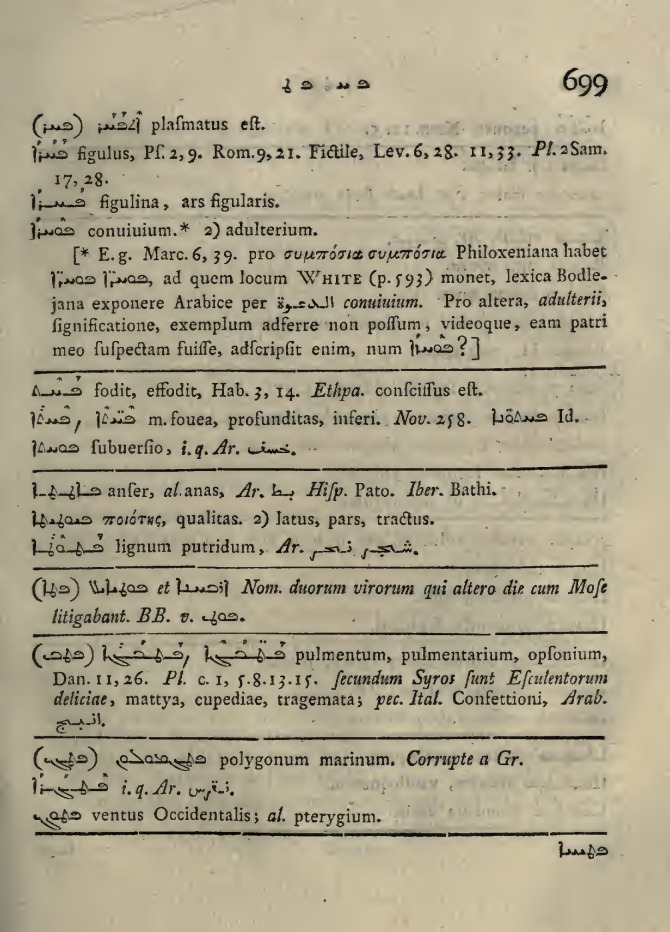 ܦ ܚ ܦ ܛ 699
(ܦܚܪ) ܐܬܦܚܪ plaſmatus eſt.
ܦܚܪܐ figulus, Pſ. 2, 9. Rom. 9, 21. Fictile, Lev. 6, 28. 11, 33. Pl. 2 Sam.
17, 28.
figulina, ars figularis.
ܦܘܚܪܐ conuiuium.* 2) adulterium.
[* E. g. Marc. 6, 39. pro συμπόσια συμπόσια Philoxeniana habet
ܦܘܚܪ̈ܐ ܦܘܚܪ̈ܐ, ad quem locum WHITE (p. 593) monet, lexica Bodle-
jana exponere Arabice per الدعوة conuiuium. Pro altera, adulterii,
ſignificatione, exemplum adferre non poſſum, videoque, eam patri
meo ſuſpectam fuiſſe, adſcripſit enim, num ܦܘܚܪܐ?]
ܦܚܬ fodit, effodit, Hab. 3, 14. Ethpa. conſciſſus eſt.
ܦܚܬܐ, ܦܚ̈ܬܐ m. fouea, profunditas, inferi. Nov. 258. Id.
ܦܘܚܬܐ ſubuerſio, i. q. Ar. خسف.
anſer, al. anas, Ar. بط Hiſp. Pato. Iber. Bathi.
ποιότης, qualitas. 2) latus, pars, tractus.
lignum putridum, Ar.
et Nom. duorum virorum qui altero die cum Moſe
litigabant. BB. v.
pulmentum, pulmentarium, opſonium,
Dan. 11, 26. Pl. c. 1, 5. 8. 13. 15. ſecundum Syros ſunt Eſculentorum
deliciae, mattya, cupediae, tragemata; pec. Ital. Confettioni, Arab.
polygonum marinum. Corrupte a Gr.
i. q. Ar.
ventus Occidentalis; al. pterygium.